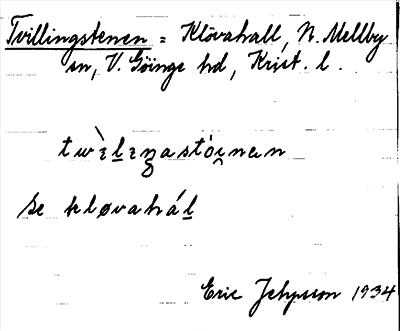 Tvillingstenen = Klövahall, N. Mellby
sn, V. Göinge hd, Krist. l.
se kløvahál
Eric 1934